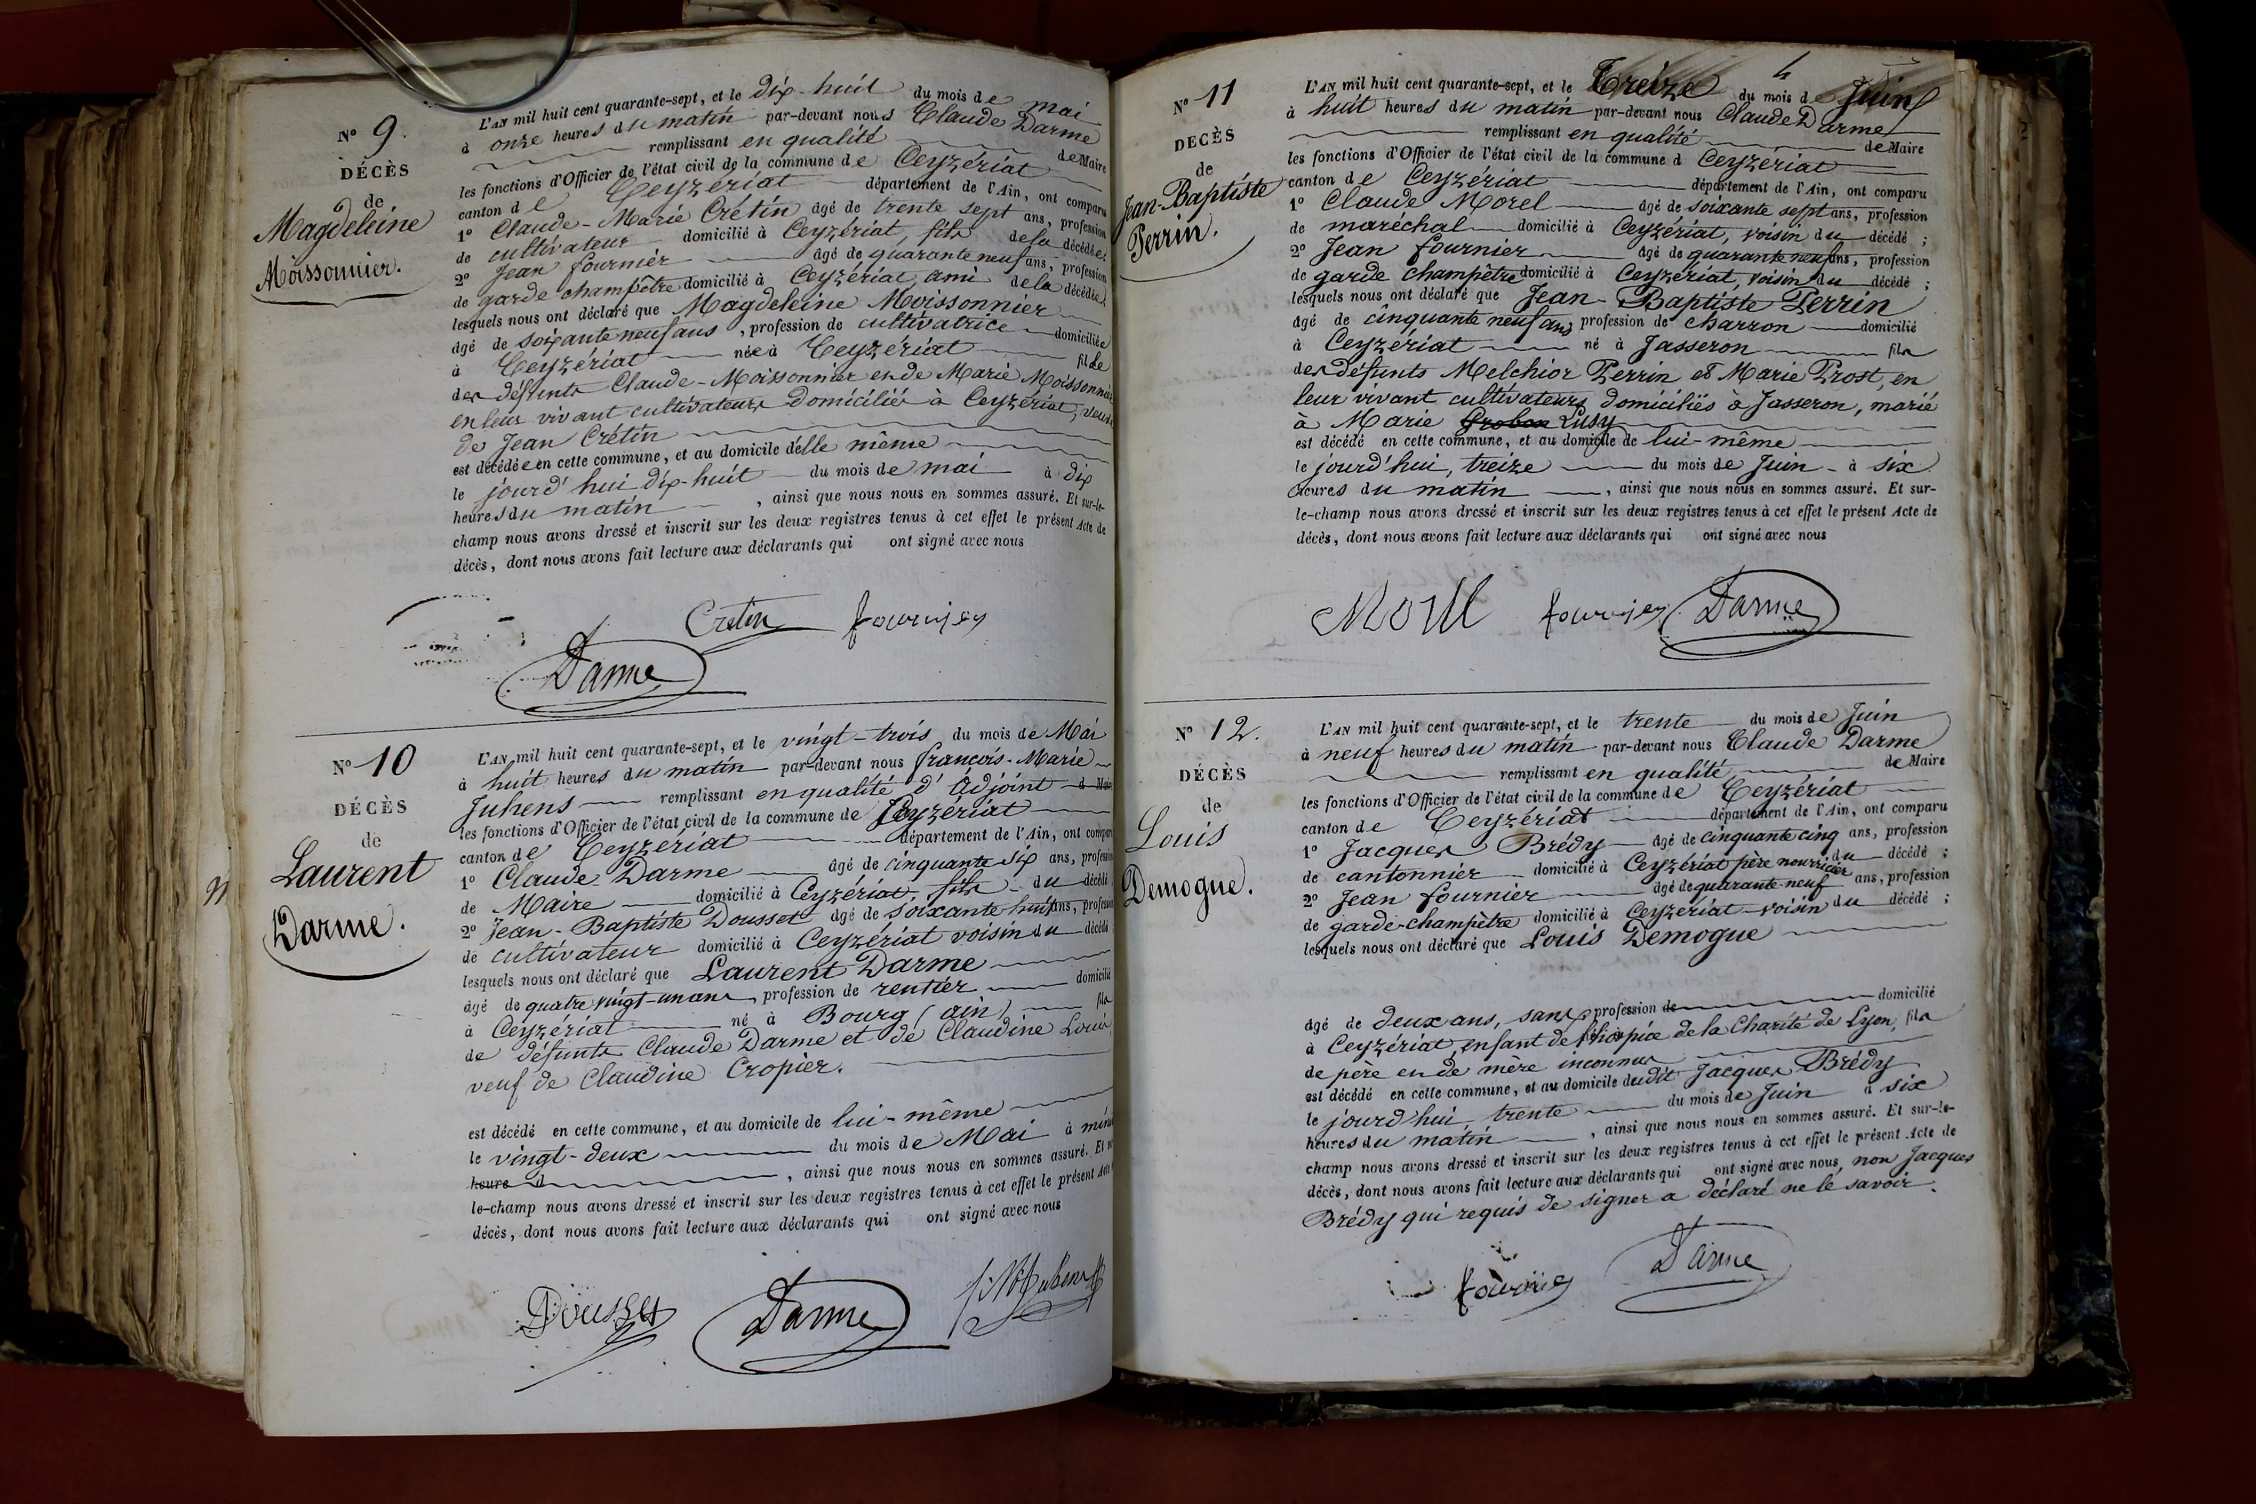 N° 9.
DÉCÈS
de
Magdeleine
Moissonnier.
L'AN mil huit cent quarante-sept, et le dix-huit du mois de mai
à onze heures du matin par-devant nous Claude Darme
remplissant en qualité de Maire
les fonctions d'Officier de l'état civil de la commune de Ceyzériat
canton de Ceyzériat département de l'Ain, ont comparu
1° Claude-Marie Crétin âgé de trente sept ans, profession
de cultivateur domicilié à Ceyzériat, fils de la décédée;
2° Jean fournier âgé de quarante neuf ans, profession
de garde champêtre domicilié à Ceyzériat, ami de la décédée;
lesquels nous ont déclaré que Magdeleine Moissonnier
âgé de soixante neuf ans, profession de cultivatrice domiciliée
à Ceyzériat née à Ceyzériat fille
des défunts Claude-Moissonnier et de Marie Moissonnier
en leur vivant cultivateurs domiciliés à Ceyzériat, veuve
de Jean Crétin
est décédée en cette commune, et au domicile d'elle même
le jourd'hui dix-huit du mois de mai à dix
heures du matin, ainsi que nous nous en sommes assuré. Et sur-le-
champ nous avons dressé et inscrit sur les deux registres tenus à cet effet le présent Acte de
décès, dont nous avons fait lecture aux déclarants qui ont signé avec nous
Cretin fournier
Darme
N° 10
DÉCÈS
de
Laurent
Darme.
L'AN mil huit cent quarante-sept, et le vingt-trois du mois de Mai
à huit heures du matin par-devant nous françois-Marie
Juhens remplissant en qualité d'Adjoint d Maire
les fonctions d'Officier de l'état civil de la commune de Ceyzériat
canton de Ceyzériat département de l'Ain, ont comparu
1° Claude Darme âgé de cinquante six ans, profession
de Maire domicilié à Ceyzériat, fils du décédé
2° Jean-Baptiste Dousset âgé de soixante huit ans, profession
de cultivateur domicilié à Ceyzériat voisin du décédé
lesquels nous ont déclaré que Laurent Darme
âgé de quatre vingt-un ans, profession de rentier domicilié
à Ceyzériat né à Bourg (ain) fils
de défunts Claude Darme et de Claudine Louis
veuf de Claudine Cropier.
est décédé en cette commune, et au domicile de lui-même
le vingt-deux du mois de Mai à
heure d, ainsi que nous nous en sommes assuré. Et
le-champ nous avons dressé et inscrit sur les deux registres tenus à cet effet le présent Acte
décès, dont nous avons fait lecture aux déclarants qui ont signé avec nous
Dousset Darme
N° 11
DECÈS
de
Jean-Baptiste
Perrin.
4
L'AN mil huit cent quarante-sept, et le Treize du mois de Juin
à huit heures du matin par-devant nous Claude Darme
remplissant en qualité de Maire
les fonctions d'Officier de l'état civil de la commune d Ceyzériat
canton de Ceyzériat département de l'Ain, ont comparu
1° Claude Morel âgé de soixante sept ans, profession
de maréchal domicilié à Ceyzériat, voisin du décédé;
2° Jean fournier âgé de quarante neuf ans, profession
de garde champêtre domicilié à Ceyzériat, voisin du décédé;
lesquels nous ont déclaré que Jean-Baptiste Perrin
âgé de cinquante neuf ans profession de charron domicilié
à Ceyzériat né à Jasseron fils
des défunts Melchior Perrin et Marie Prost, en
leur vivant cultivateurs domiciliés à Jasseron, marié
à Marie Grobon Lusy
est décédé en cette commune, et au domicile de lui-même
le jourd'hui, treize du mois de Juin à six
heures du matin, ainsi que nous nous en sommes assuré. Et sur-
le-champ nous avons dressé et inscrit sur les deux registres tenus à cet effet le présent Acte de
décès, dont nous avons fait lecture aux déclarants qui ont signé avec nous
Morel fournier Darme
N° 12.
DÉCÈS
de
Louis
Demogue.
L'AN mil huit cent quarante-sept, et le trente du mois de Juin
à neuf heures du matin par-devant nous Claude Darme
remplissant en qualité de Maire
les fonctions d'Officier de l'état civil de la commune de Ceyzériat
canton de Ceyzériat département de l'Ain, ont comparu
1° Jacques Brédy âgé de cinquante cinq ans, profession
de cantonnier domicilié à Ceyzériat père nourricier du décédé;
2° Jean fournier âgé de quarante-neuf ans, profession
de garde-champêtre domicilié à Ceyzériat voisin du décédé;
lesquels nous ont déclaré que Louis Demogue
âgé de deux ans, sans profession de domicilié
à Ceyzériat, enfant de l'hospice de la Charité de Lyon, fils
de père et de mère inconnus
est décédé en cette commune, et au domicile dudit Jacques Brédy
le jourd'hui, trente du mois de Juin à six
heures du matin, ainsi que nous nous en sommes assuré. Et sur-le-
champ nous avons dressé et inscrit sur les deux registres tenus à cet effet le présent Acte de
décès, dont nous avons fait lecture aux déclarants qui ont signé avec nous, non Jacques
Brédy qui requis de signer a déclaré ne le savoir.
fournier Darme